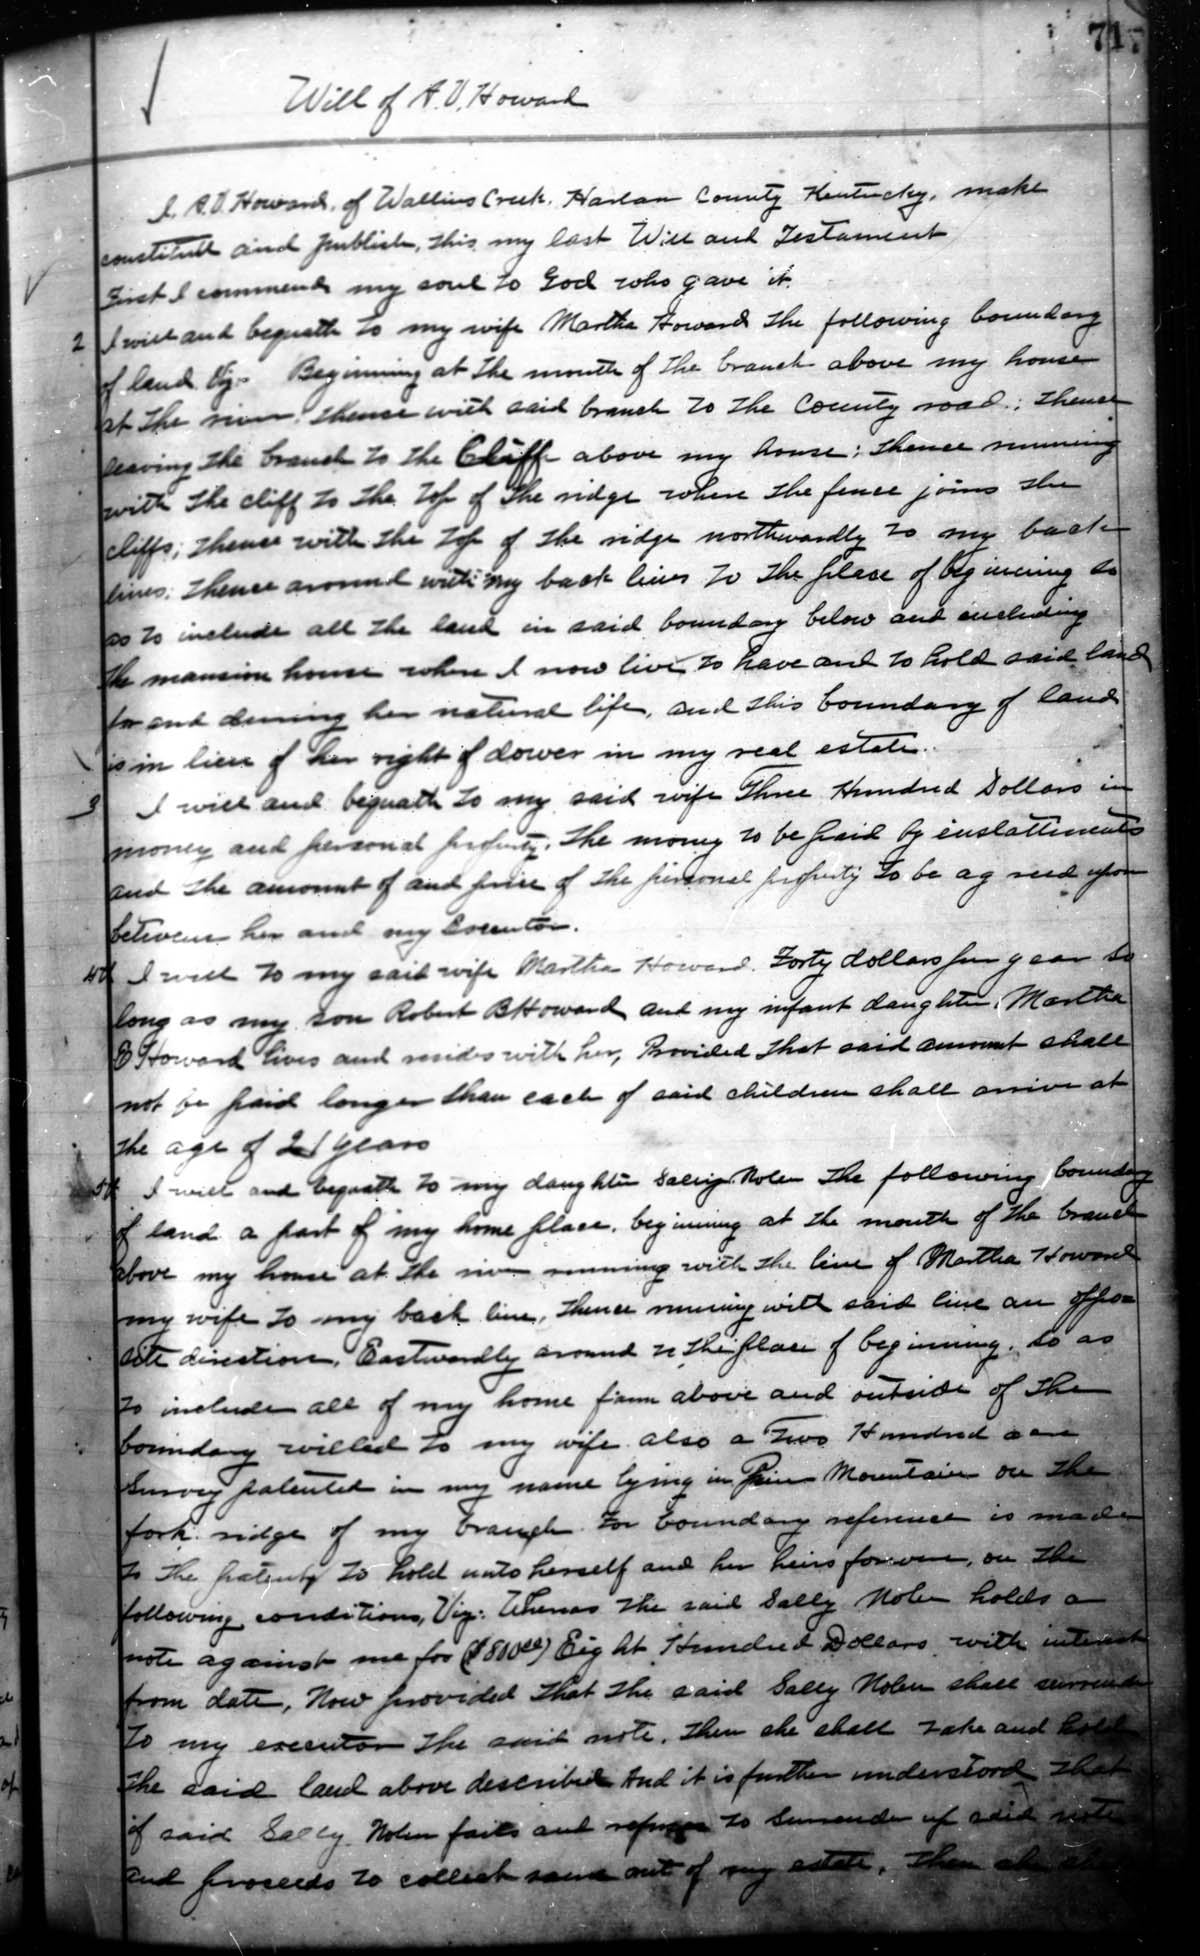 717
Will of A. V. Howard
I, A. V. Howard, of Wallins Creek, Harlan County Kentucky, make
constitute and publish, this my last Will and Testament
First I commend my soul to God who gave it.
2 I will and bequath to my wife Martha Howard the following boundary
of land Viz. Beginning at the mouth of the branch above my house
at the river, thence with said branch to the County road; thence
leaving the branch to the Cliff above my house; thence running
with the cliff to the top of the ridge where the fence joins the
cliffs; thence with the top of the ridge northwardly to my back
lines; thence around with my back lines to the place of beginning so
as to include all the land in said boundary below and including
the mansion house where I now live to have and to hold said land
for and during her natural life, and this boundary of land
is in lieu of her right of dower in my real estate.
3 I will and bequath to my said wife Three Hundred Dollars in
money and personal property, the money to be paid by installments
and the amount of and price of the personal property to be ag reed upon
between her and my Executor.
4th I will to my said wife Martha Howard Forty dollars per year so
long as my son Robert B Howard and my infant daughter, Martha
E Howard lives and resides with her, Provided that said amount shall
not be paid longer than each of said children shall arrive at
the age of 21 years
5th I will and bequath to my daughter Sally Nolen the following boundary
of land a part of my home place, beginning at the mouth of the branch
above my house at the river running with the line of Martha Howard
my wife to my back line, thence running with said line an oppo=
site direction, Eastwardly around to the place of beginning, so as
to include all of my home farm above and outside of the
boundary willed to my wife also a Two Hundred acre
Survey patented in my name lying in Pine Mountain on the
fork ridge of my branch For boundary reference is made
to the patent, to hold unto herself and her heirs forever, on the
following conditions, Viz: Whereas the said Sally Nolen holds a
note against me for ($800.00) Eight Hundred Dollars with interest
from date, Now provided that the said Sally Nolen shall surrender
to my executor the said note, then she shall take and hold
the said land above described And it is further understood that
if said Sally Nolen fails and refuses to Surrender up said note
and proceeds to collect same out of my estate, then she